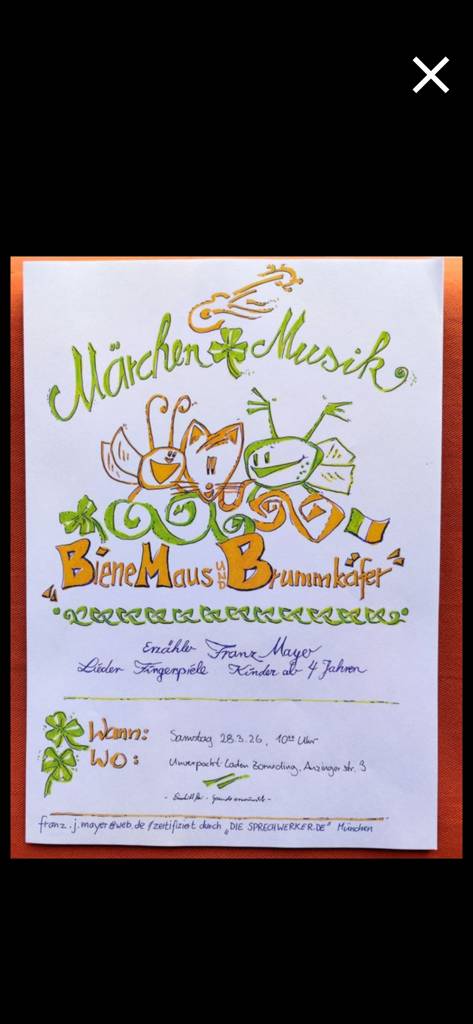 Märchen Musik
"Biene Maus und Brummkäfer"
Erzähler Franz Mayer
Lieder Fingerspiele Kinder ab 4 Jahren
Wann: Samstag 28.3.26, 10 Uhr
Wo: Unverpackt Laden Zorneding, Anzinger Str. 9
franz.j.mayer@web.de / zertifiziert durch "DIE SPRECHWERKER.DE" München